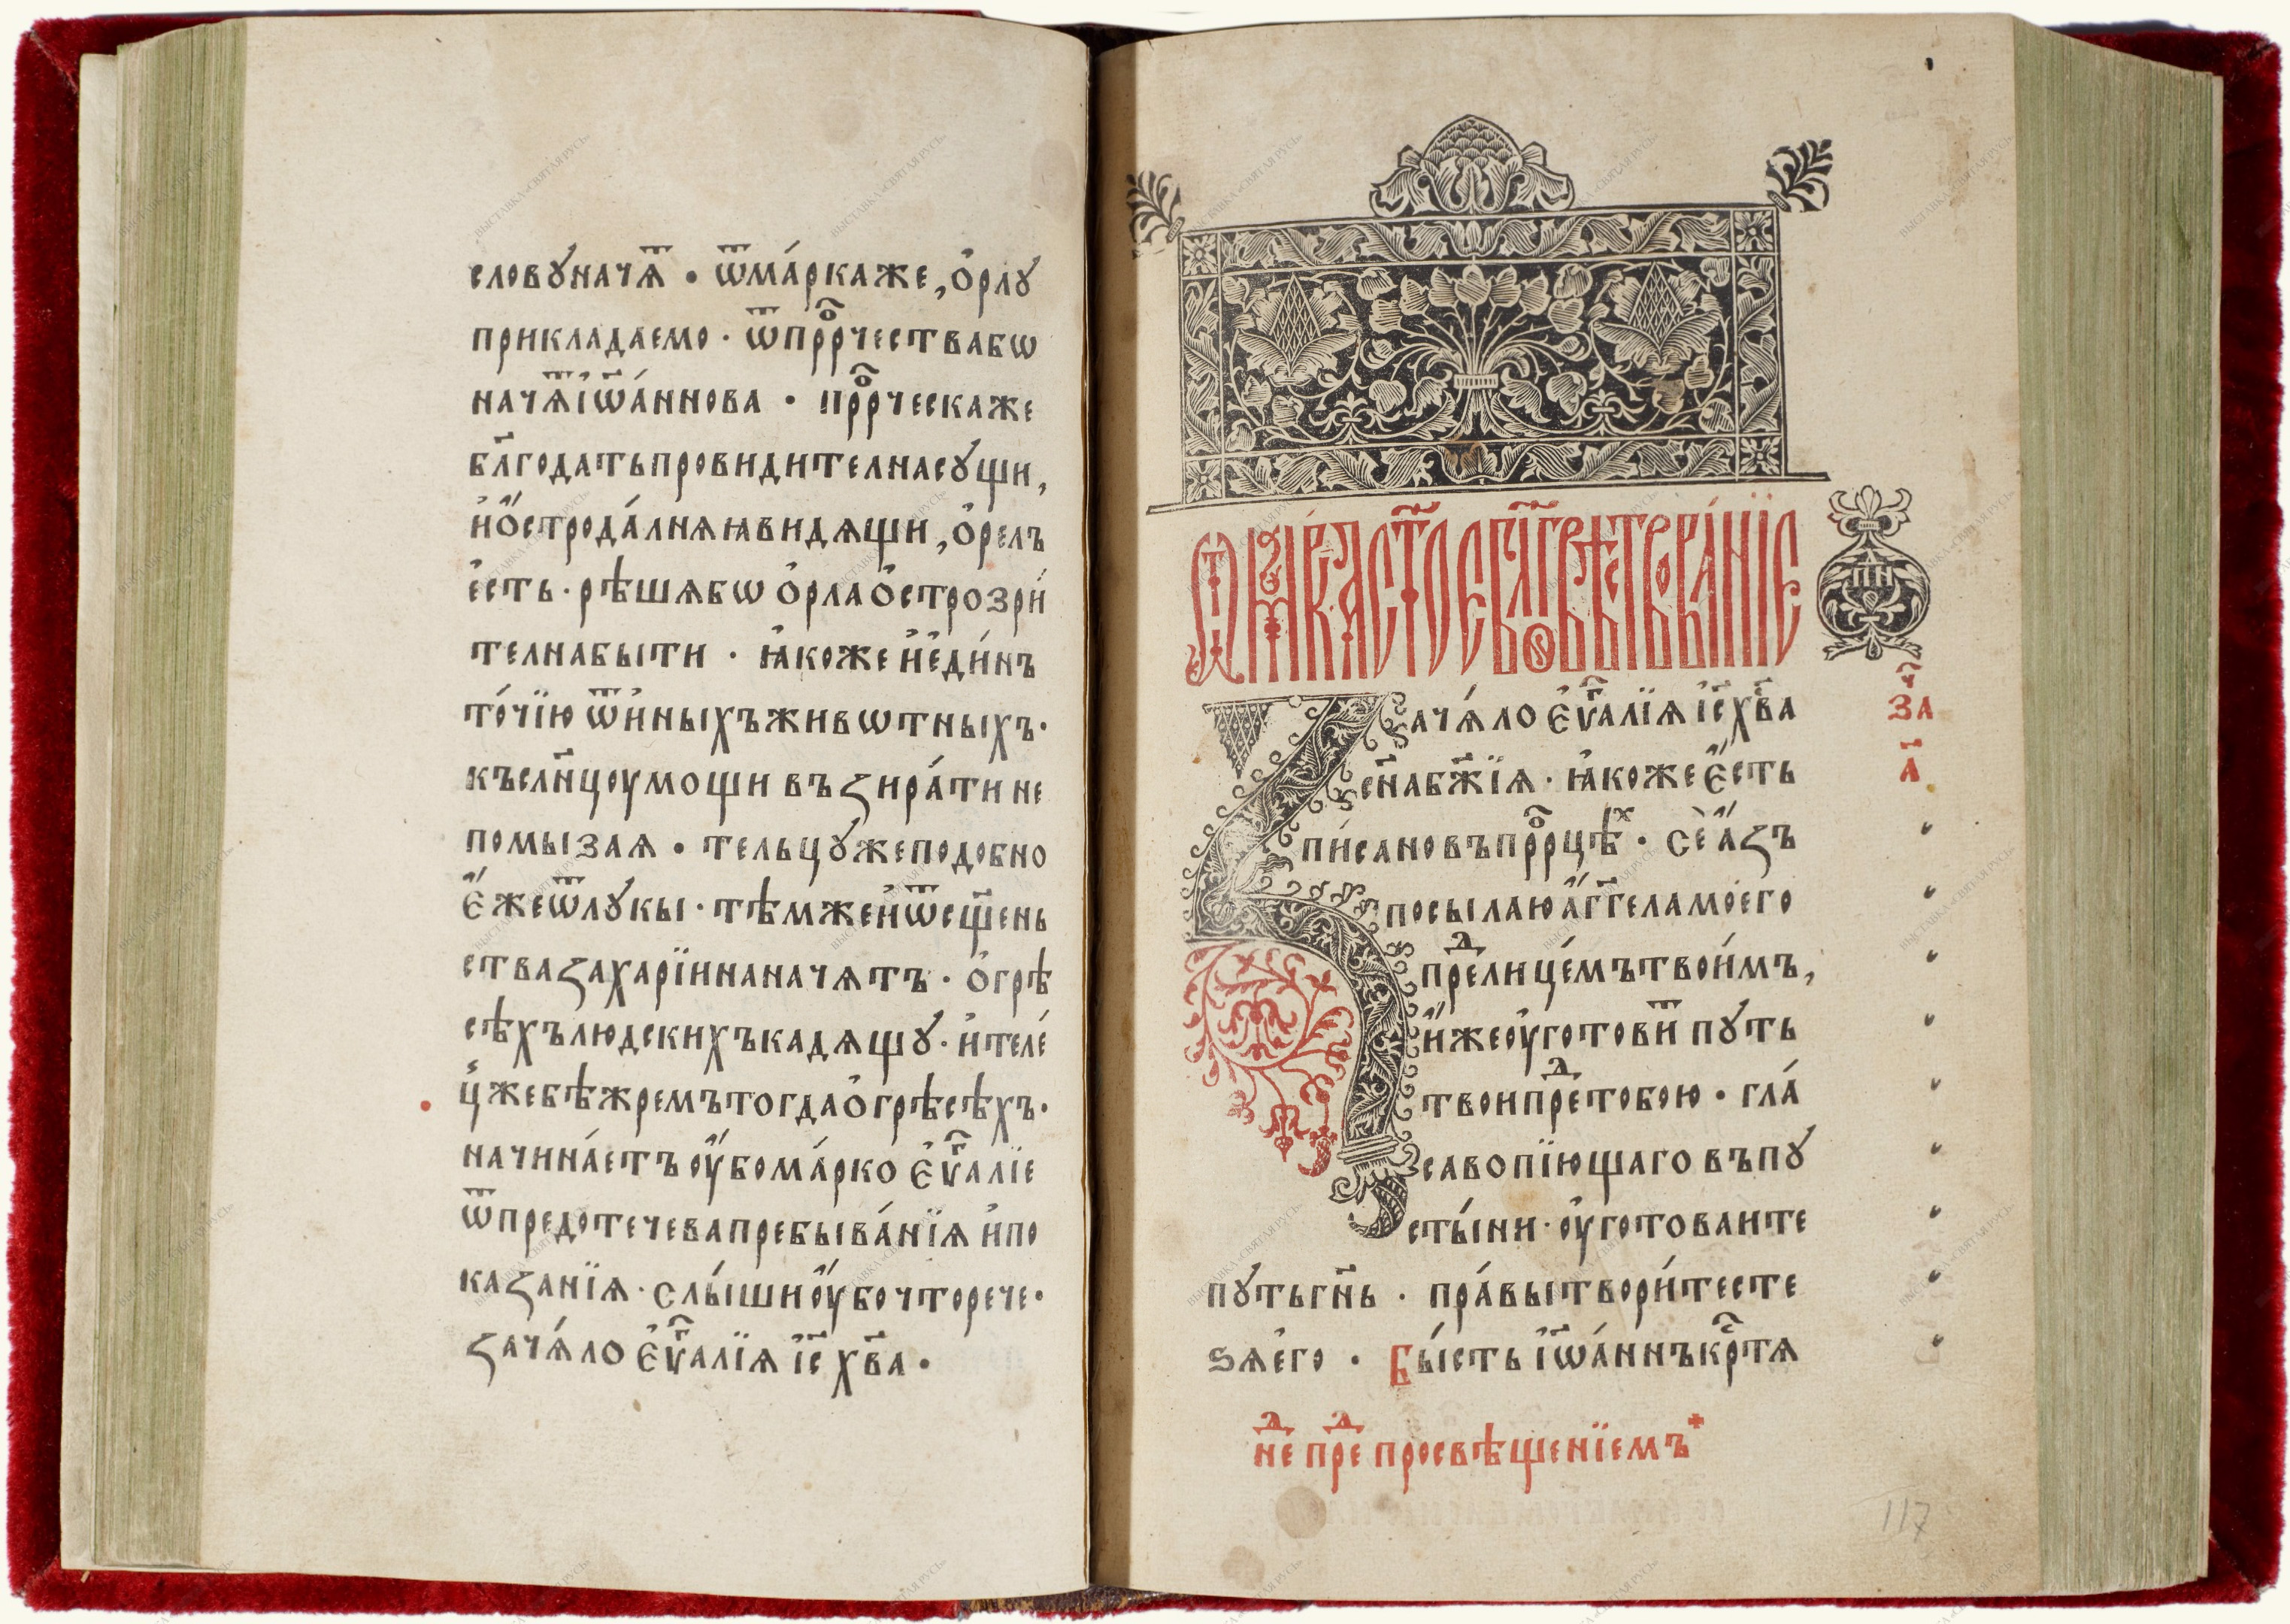 словꙋначѧ҃ · ѿма́ркаже, ѻ҆рлꙋ
прикладаемо · ѿпррⷪ҇чествабѡ
начѧ҃і҆ѡа́ннова · прⷪ҇рческаже
бл҃годатьпровидителнасꙋщи,
и҆ѻ҆строда́лняꙗвидѧщи, ѻ҆релъ
є҆сть · рѣшѧбѡ ѻ҆рлаѻ҆строзри́
телнабыти · ꙗ҆кожеи҆є҆ди́нъ
то́чїю ѿи҆ныхъживѡтныхъ·
къслн҃цоумощи въꙁира́ти не
помызаѧ · тельцꙋжеподобно
є҆́жеѿлꙋкы · тѣмжеи҆ѿсщ҃ень
стваꙁахарїинаначѧтъ · ѻ҆грѣ
сѣхълюдскихъкадѧщꙋ · и҆теле́
цжебѣжремътогдаѻ҆грѣсѣхъ·
начина́етъоу҆́бома́рко є҆ѵⷢ҇алїе
ѿпредотечевапребыва́нїѧ и҆по
каꙁанїѧ · слы́шиоу҆́бочторече·
ꙁачѧ́ло є҆ѵⷢ҇алїѧ і҆с҃ хв҃а ·
ѿма́ркаст҃оеєѵⷢ҇лїебл҃говѣствова́нїе
пи҃
Зачѧ́ло є҆ѵⷢ҇алїѧ і҆с҃ хв҃а
сн҃абж҃їѧ · ꙗ҆коже є҆́сть
пи́сановъпррⷪ҇цѣⷯ · сѐ а҆́ꙁъ
посылаюа҆́гг҃еламоего
преⷣлице́мътвои́мъ,
и҆́жеоу҆готовиⷮ пꙋть
твоипреⷣтобою · гла́
савопїющаго въпꙋ
сты́ни · оу҆готоваите
пꙋтьгн҃ь · пра́вытвори́тесте
ꙃѧ̀его · Бы́сть і҆ѡа́ннъкрⷭ҇тѧ
заⷱ҇
а҃
неⷣ преⷣ просвѣщенїемъ
117